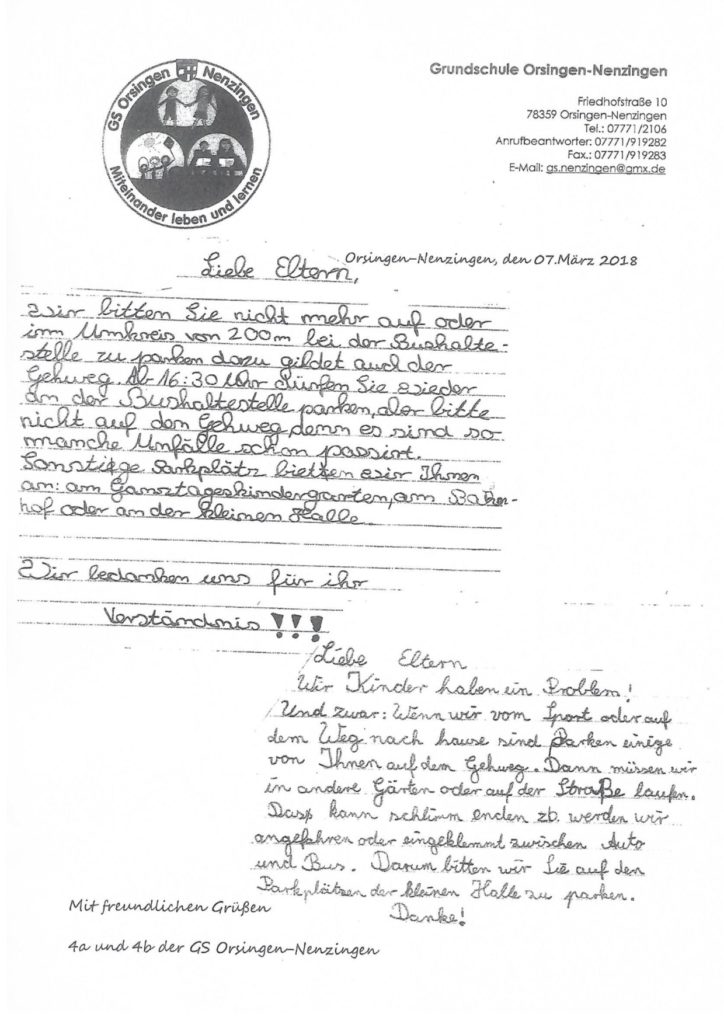 GS Orsingen Nenzingen
Miteinander leben und lernen
Grundschule Orsingen-Nenzingen
Friedhofstraße 10
78359 Orsingen-Nenzingen
Tel.: 07771/2106
Anrufbeantworter: 07771/919282
Fax.: 07771/919283
E-Mail: gs.nenzingen@gmx.de
Orsingen-Nenzingen, den 07.März 2018
Liebe Eltern,
Wir bitten Sie nicht mehr auf oder
im Umkreis von 200m bei der Bushalte-
stelle zu parken dazu gildet auch der
Gehweg. Ab 16:30 Uhr dürfen Sie wieder
an der Bushaltestelle parken, aber bitte
nicht auf dem Gehweg, denn es sind so
manche Unfälle schon passirt.
Sonstige Parkplätz bietten wir Ihnen
an: am Ganztageskindergarten, am Bahn-
hof oder an der kleinen Halle
Wir bedanken uns für ihr
Verständnis !!!
Liebe Eltern
Wir Kinder haben ein Problem!
Und zwar: Wenn wir vom Sport oder auf
dem Weg nach hause sind Parken einige
von Ihnen auf dem Gehweg. Dann müssen wir
in andere Gärten oder auf der Straße laufen.
Dass kann schlimm enden zb. werden wir
angefahren oder eingeklemmt zwischen Auto
und Bus. Darum bitten wir Sie auf den
Parkplätzen der kleinen Halle zu parken.
Danke!
Mit freundlichen Grüßen
4a und 4b der GS Orsingen-Nenzingen